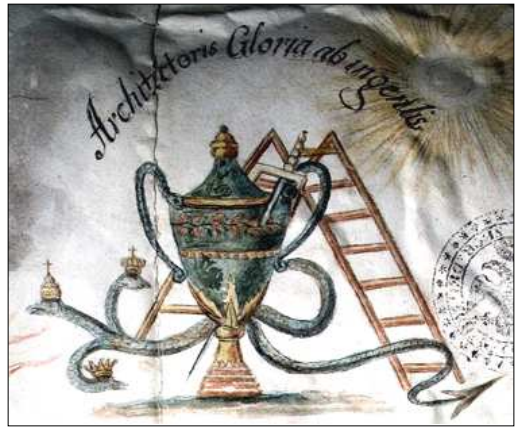 Architettoris Gloria ab ingentis